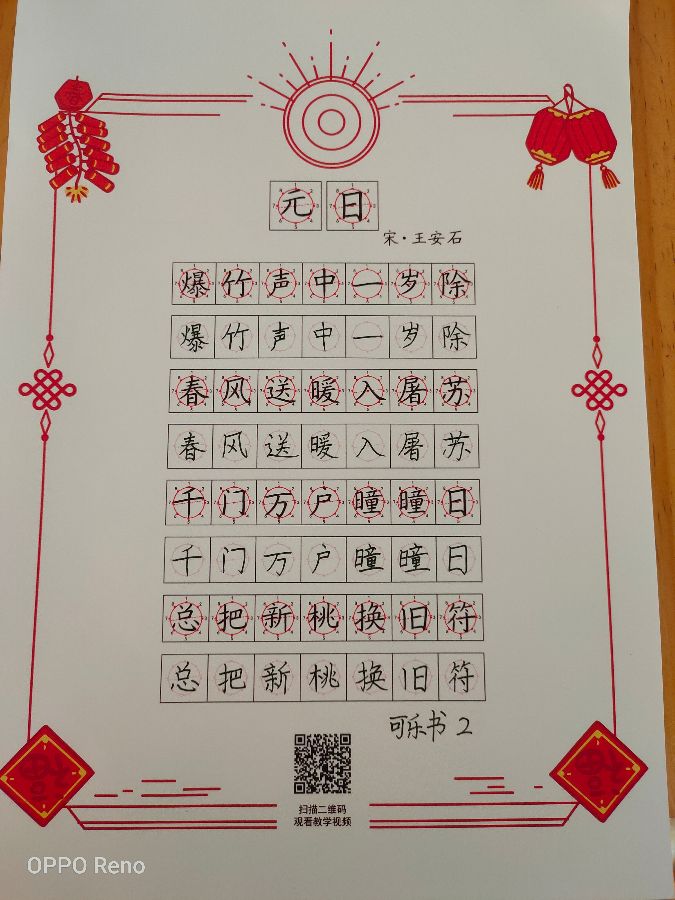 元日
宋·王安石
爆竹声中一岁除
爆竹声中一岁除
春风送暖入屠苏
春风送暖入屠苏
千门万户曈曈日
千门万户曈曈日
总把新桃换旧符
总把新桃换旧符
可乐书 2
扫描二维码
观看教学视频
OPPO Reno